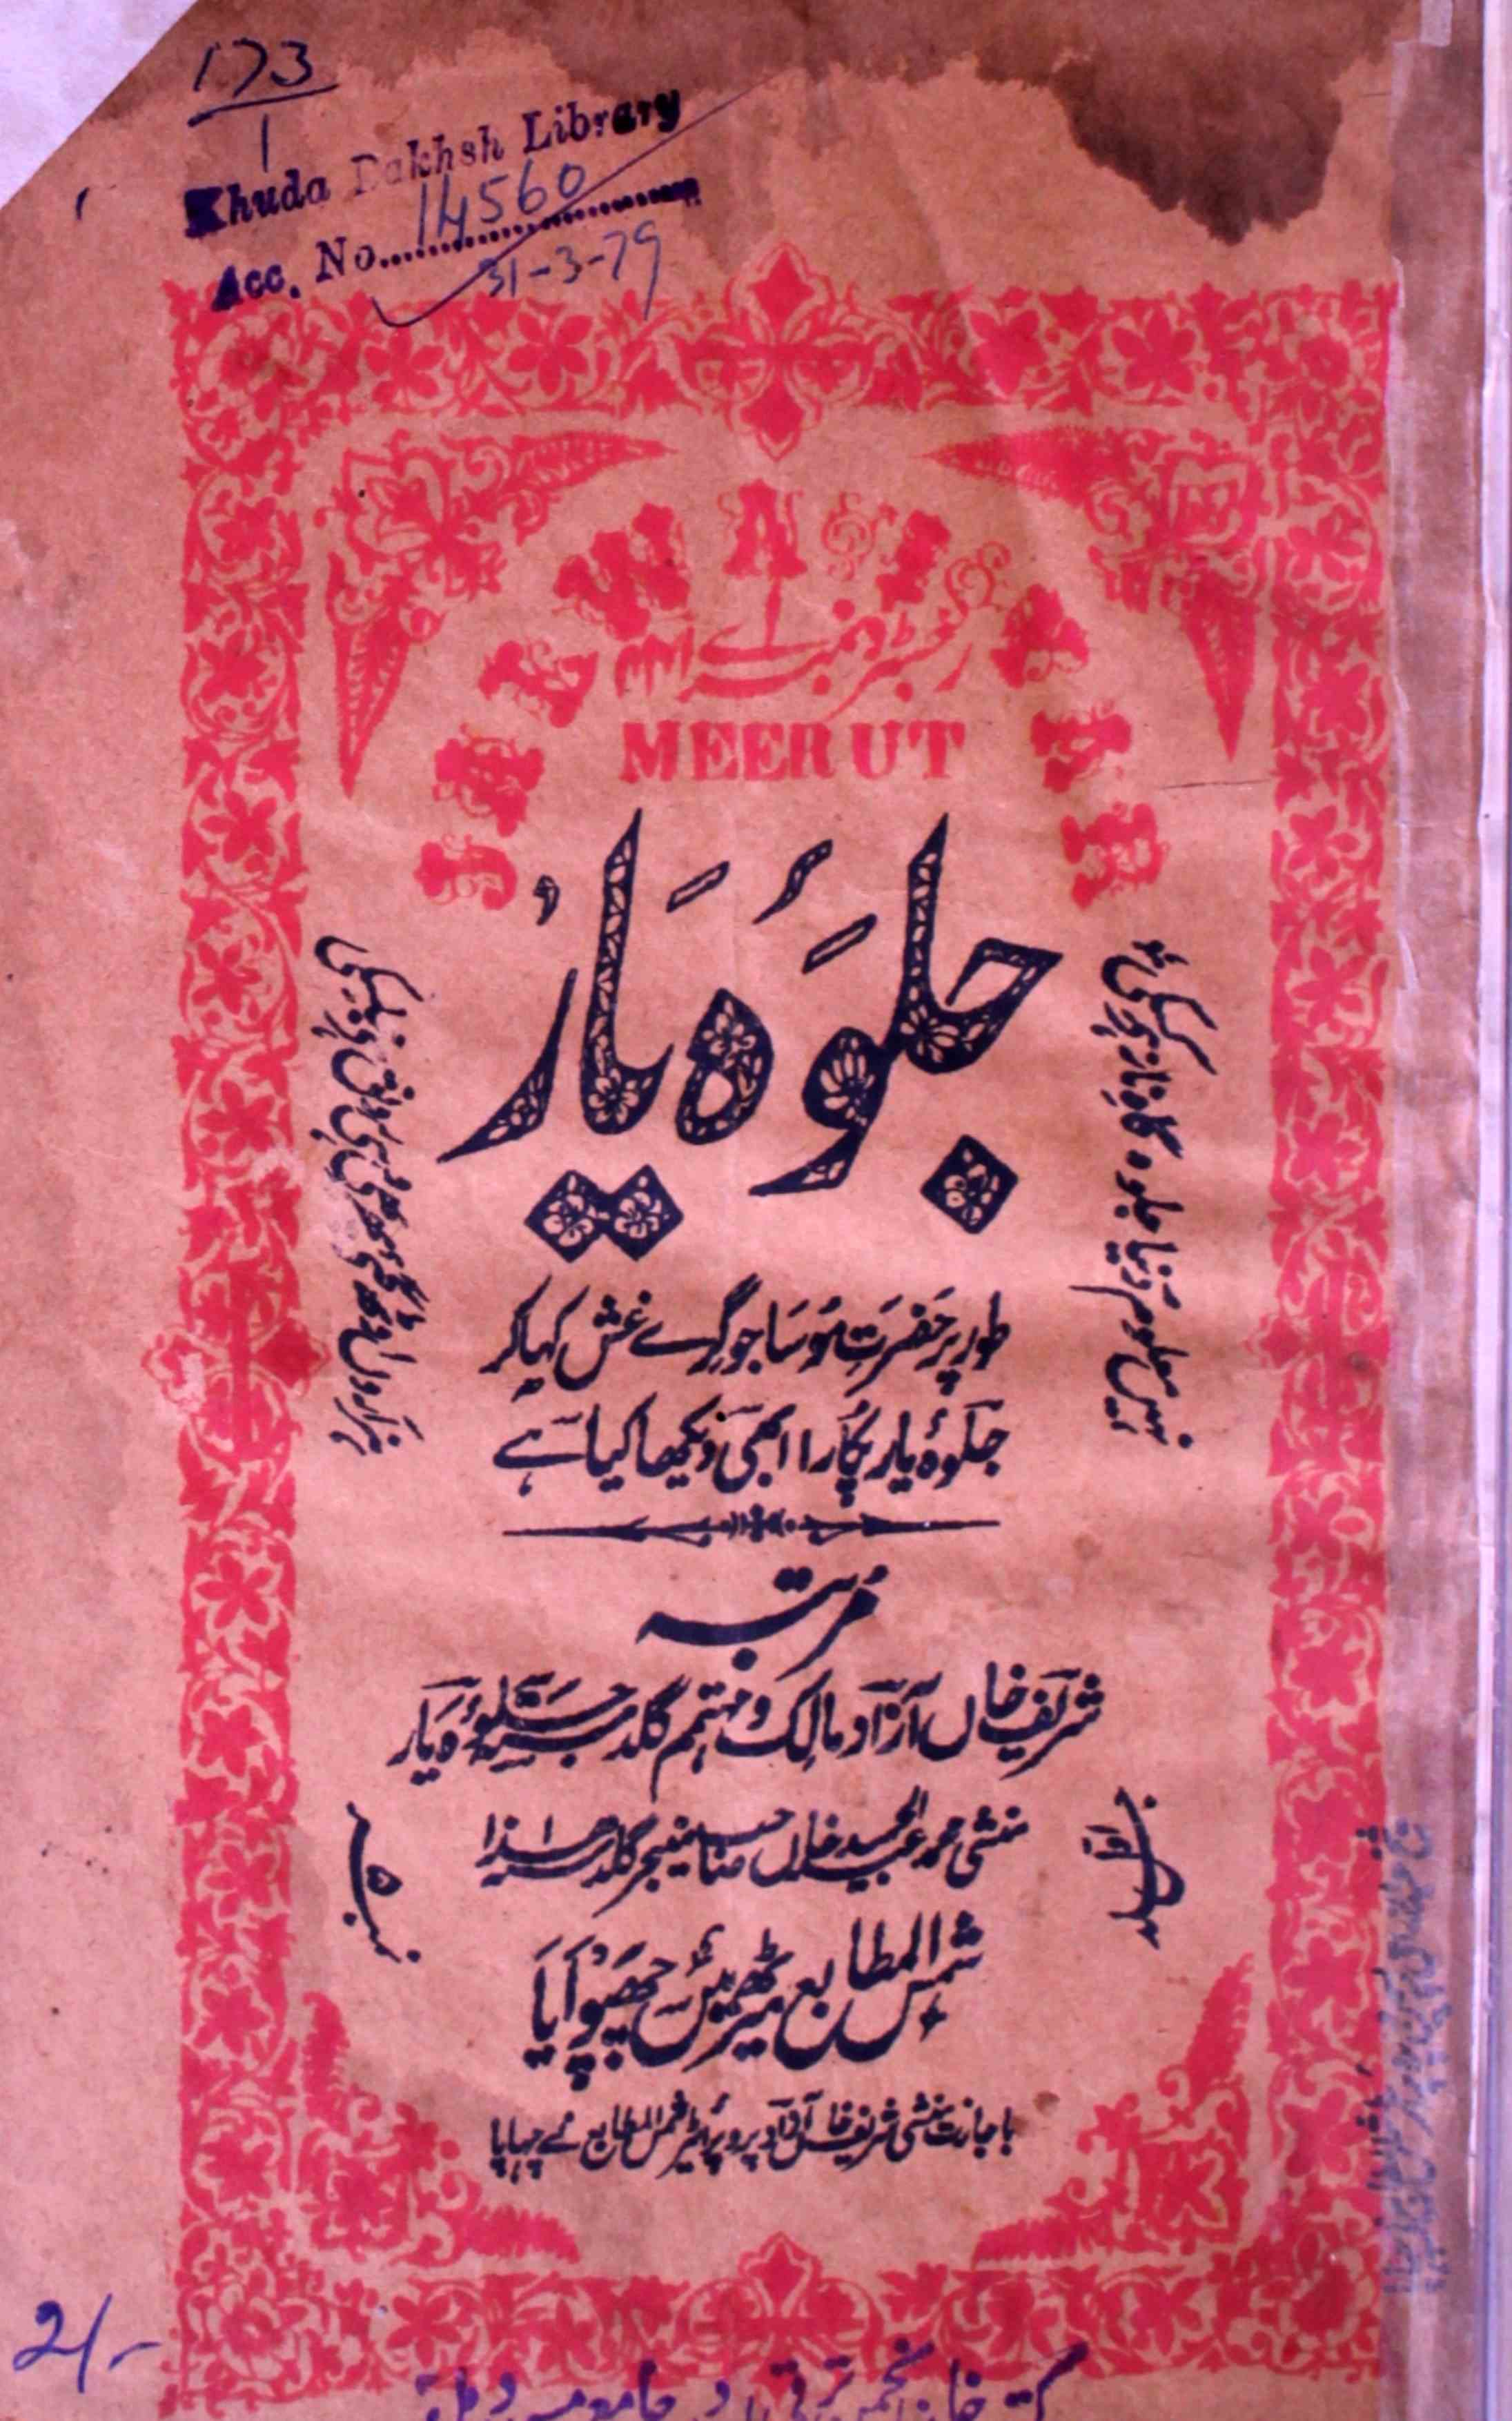 173
1
Khuda Bakhsh Library
Acc. No. 14560
31-3-79
JALWA-E-YAR
رجسٹرڈ نمبر اے
MEERUT
جلوۂ یار
طور پر حضرت موسا جو گرے غش کہا کر
جلوۂ یار پکارا ابھی دیکھا کیا ہے
مرتبہ
شریف خاں آزاد مالک و مہتمم گلدستہ جلوۂ یار
منشی محمد عبدالمجید خاں صاحب منیجر گلدستہ ہذا
نمبر ۵
شمس المطابع میرٹھ میں چھپوایا
باجازت منشی شریف خاں آزاد پروپرائٹر شمس المطابع نے چہاپا
2/-
کتب خانہ انجمن ترقی اردو جامع مسجد دہلی